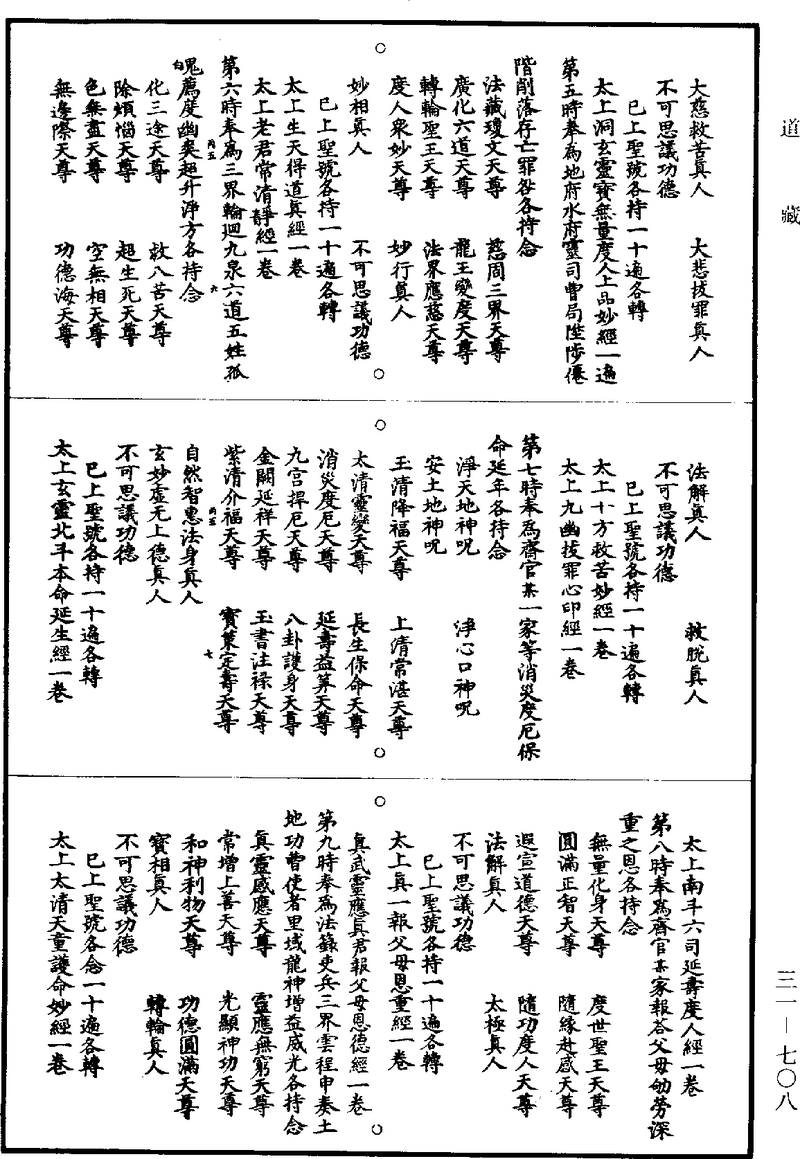 道藏
三一—七〇八
大慈救苦真人　大悲拔罪真人
不可思議功德
已上聖號各持一十遍各轉
太上洞玄靈寶無量度人上品妙經一遍
第五時奉為地府水府靈司曹局陞陟僊
階削落存亡罪咎各持念
法藏瓊文天尊　慈周三界天尊
廣化六道天尊　龍王變度天尊
轉輪聖王天尊　法界應慈天尊
度人眾妙天尊　妙行真人
妙相真人　不可思議功德
已上聖號各持一十遍各轉
太上生天得道真經一卷
太上老君常清靜經一卷
第六時奉為三界輪迴九泉六道五姓孤
魂薦度幽奚超升淨方各持念
化三途天尊　救八苦天尊
除煩惱天尊　超生死天尊
色無盡天尊　空無相天尊
無邊際天尊　功德海天尊
法解真人　救脫真人
不可思議功德
已上聖號各持一十遍各轉
太上十方救苦妙經一卷
太上九幽拔罪心印經一卷
第七時奉為齋官某一家等消災度厄保
命延年各持念
淨天地神呪　淨心口神呪
安土地神呪
玉清降福天尊　上清常湛天尊
太清靈變天尊　長生保命天尊
消災度厄天尊　延壽益筭天尊
九宮捍厄天尊　八卦護身天尊
金闕延祥天尊　玉書注祿天尊
紫清介福天尊　寶籙定壽天尊
自然智惠法身真人
玄妙虛无上德真人
不可思議功德
已上聖號各持一十遍各轉
太上玄靈北斗本命延生經一卷
太上南斗六司延壽度人經一卷
第八時奉為齋官某家報荅父母劬勞深
重之恩各持念
無量化身天尊　度世聖王天尊
圓滿正智天尊　隨緣赴感天尊
遐宣道德天尊　隨功度人天尊
法解真人　太極真人
不可思議功德
已上聖號各持一十遍各轉
太上真一報父母恩重經一卷
真武靈應真君報父母恩德經一卷
第九時奉為法籙吏兵三界雲程申奏土
地功曹使者里域龍神增益威光各持念
真靈感應天尊　靈應無窮天尊
常增上善天尊　光顯神功天尊
和神利物天尊　功德圓滿天尊
寶相真人　轉輪真人
不可思議功德
已上聖號各念一十遍各轉
太上太清天童護命妙經一卷